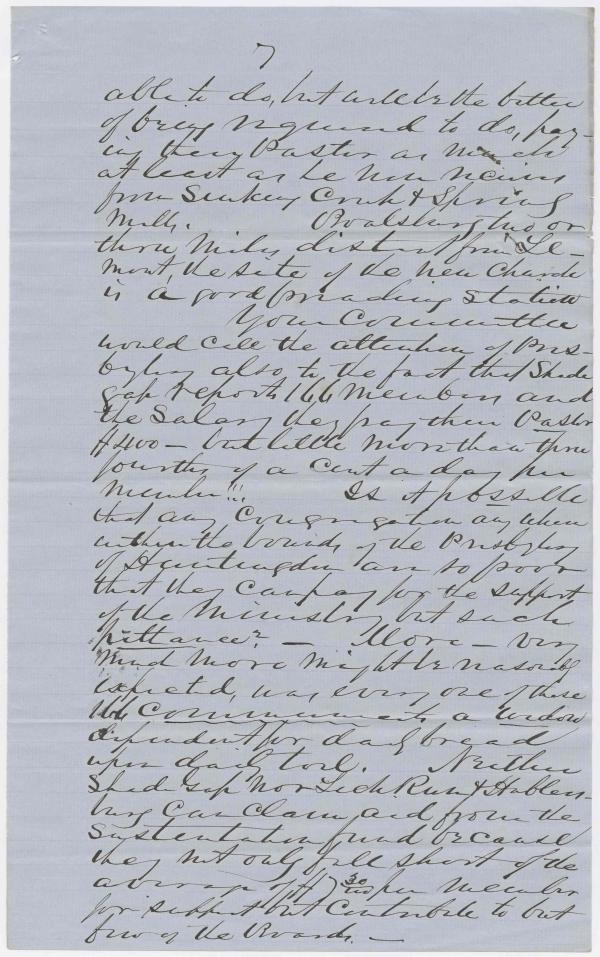 7
able to do, but will be the better
of being required to do, pay-
ing their Pastor as much
at least as he now receives
from Sinking Creek & Spring
Mills. Boalsburg two or
three miles distant from Le-
mont, the site of the new Church
is a good preaching station
Your Committee
would call the attention of Pres-
bytery also, to the fact that Shade
gap reports 166 members and
the Salary they pay their Pastor
$400 — but little more than three
fourths of a cent a day per
member!!! Is it possible
that any Congregation any where
within the bounds of the Presbytery
of Huntingdon are so poor
that they can pay for the support
of the Ministry but such
pittance? — More — very
much more might be reasonably
expected, was every one of these
166 Communicants a widow
dependent for daily bread
upon daily toil. Neither
Shade Gap nor Lick Run & Hublers-
burg can claim aid from the
Sustentation fund because
they not only fall short of the
average of $7 30/100 per member
for support but contribute to but
few of the Boards. —